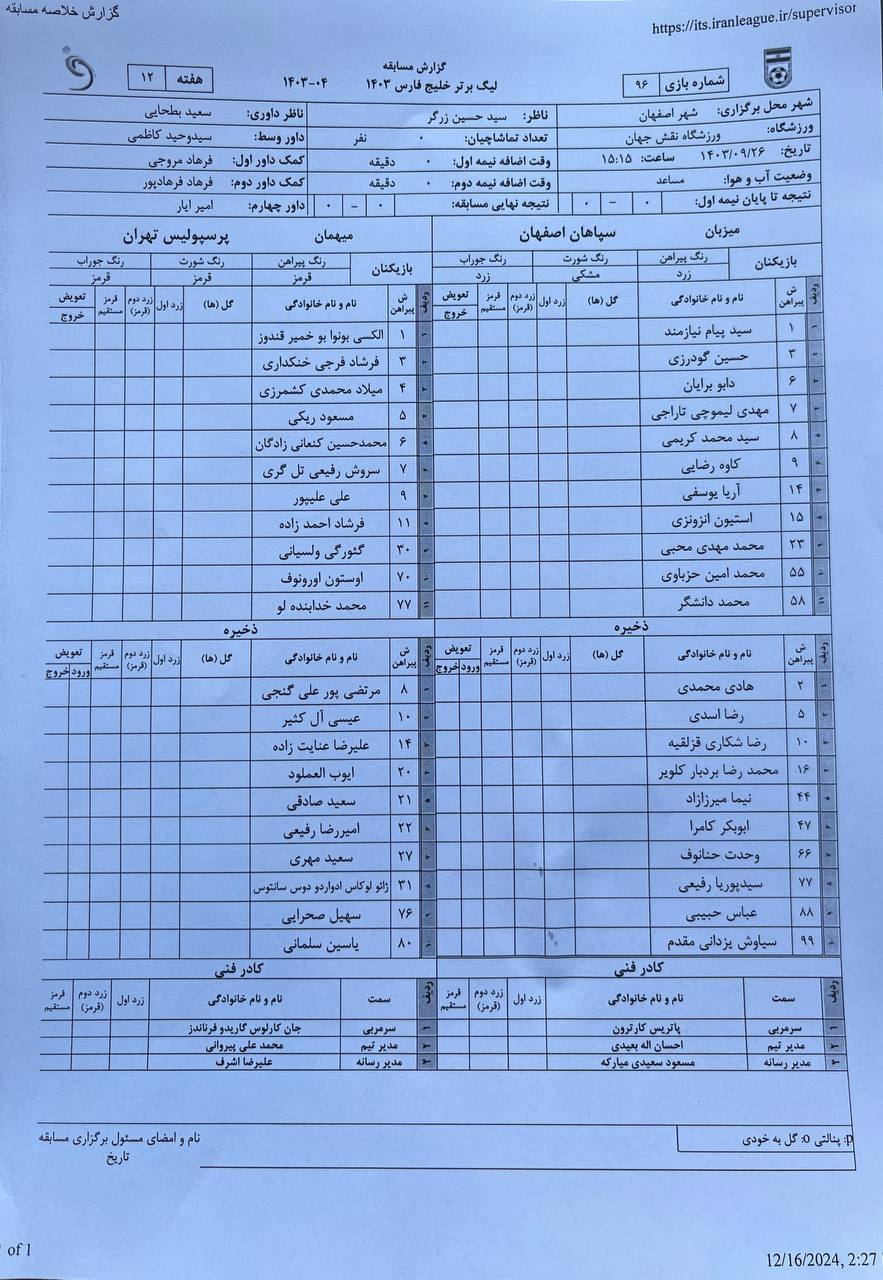 گزارش خلاصه مسابقه
https://its.iranleague.ir/supervisor
گزارش مسابقه
شماره بازی ۹۶
لیگ برتر خلیج فارس ۱۴۰۳ ۰۴-۱۴۰۳
هفته ۱۲
شهر محل برگزاری: شهر اصفهان ناظر: سید حسین زرگر ناظر داوری: سعید بطحایی
ورزشگاه: ورزشگاه نقش جهان تعداد تماشاچیان: ۰ نفر داور وسط: سیدوحید کاظمی
تاریخ: ۱۴۰۳/۰۹/۲۶ ساعت: ۱۵:۱۵ وقت اضافه نیمه اول: ۰ دقیقه کمک داور اول: فرهاد مروجی
وضعیت آب و هوا: مساعد وقت اضافه نیمه دوم: ۰ دقیقه کمک داور دوم: فرهاد فرهادپور
نتیجه تا پایان نیمه اول: ۰ – ۰ نتیجه نهایی مسابقه: ۰ – ۰ داور چهارم: امیر ایار
میزبان سپاهان اصفهان
بازیکنان رنگ پیراهن رنگ شورت رنگ جوراب
زرد مشکی زرد
ردیف ش پیراهن نام و نام خانوادگی گل (ها) زرد اول زرد دوم (قرمز) قرمز مستقیم تعویض خروج
۱ ۱ سید پیام نیازمند
۲ ۳ حسین گودرزی
۳ ۶ دابو برایان
۴ ۷ مهدی لیموچی تاراجی
۵ ۸ سید محمد کریمی
۶ ۹ کاوه رضایی
۷ ۱۴ آریا یوسفی
۸ ۱۵ استیون انزونزی
۹ ۲۳ محمد مهدی محبی
۱۰ ۵۵ محمد امین حزباوی
۱۱ ۵۸ محمد دانشگر
ذخیره
ردیف ش پیراهن نام و نام خانوادگی گل (ها) زرد اول زرد دوم (قرمز) قرمز مستقیم تعویض ورود خروج
۱ ۲ هادی محمدی
۲ ۵ رضا اسدی
۳ ۱۰ رضا شکاری قزلقیه
۴ ۱۶ محمد رضا بردبار کلویر
۵ ۴۴ نیما میرزازاد
۶ ۴۷ ابوبکر کامرا
۷ ۶۶ وحدت حنانوف
۸ ۷۷ سیدپوریا رفیعی
۹ ۸۸ عباس حبیبی
۱۰ ۹۹ سیاوش یزدانی مقدم
کادر فنی
ردیف سمت نام و نام خانوادگی زرد اول زرد دوم (قرمز) قرمز مستقیم
۱ سرمربی پاتریس کارترون
۲ مدیر تیم احسان اله بعیدی
۳ مدیر رسانه مسعود سعیدی مبارکه
میهمان پرسپولیس تهران
بازیکنان رنگ پیراهن رنگ شورت رنگ جوراب
قرمز قرمز قرمز
ردیف ش پیراهن نام و نام خانوادگی گل (ها) زرد اول زرد دوم (قرمز) قرمز مستقیم تعویض خروج
۱ ۱ الکسی بونوا بو خمیر قندوز
۲ ۳ فرشاد فرجی خنکداری
۳ ۴ میلاد محمدی کشمرزی
۴ ۵ مسعود ریکی
۵ ۶ محمدحسین کنعانی زادگان
۶ ۷ سروش رفیعی تل گری
۷ ۹ علی علیپور
۸ ۱۱ فرشاد احمد زاده
۹ ۳۰ گئورگی ولسیانی
۱۰ ۷۰ اوستون اورونوف
۱۱ ۷۷ محمد خدابنده لو
ذخیره
ردیف ش پیراهن نام و نام خانوادگی گل (ها) زرد اول زرد دوم (قرمز) قرمز مستقیم تعویض ورود خروج
۱ ۸ مرتضی پور علی گنجی
۲ ۱۰ عیسی آل کثیر
۳ ۱۴ علیرضا عنایت زاده
۴ ۲۰ ایوب العملود
۵ ۲۱ سعید صادقی
۶ ۲۲ امیررضا رفیعی
۷ ۲۷ سعید مهری
۸ ۳۱ ژائو لوکاس ادواردو دوس سانتوس
۹ ۷۶ سهیل صحرایی
۱۰ ۸۰ یاسین سلمانی
کادر فنی
ردیف سمت نام و نام خانوادگی زرد اول زرد دوم (قرمز) قرمز مستقیم
۱ سرمربی جان کارلوس گاریدو فرناندز
۲ مدیر تیم محمد علی پیروانی
۳ مدیر رسانه علیرضا اشرف
p: پنالتی o: گل به خودی
نام و امضای مسئول برگزاری مسابقه
تاریخ
of 1
12/16/2024, 2:27